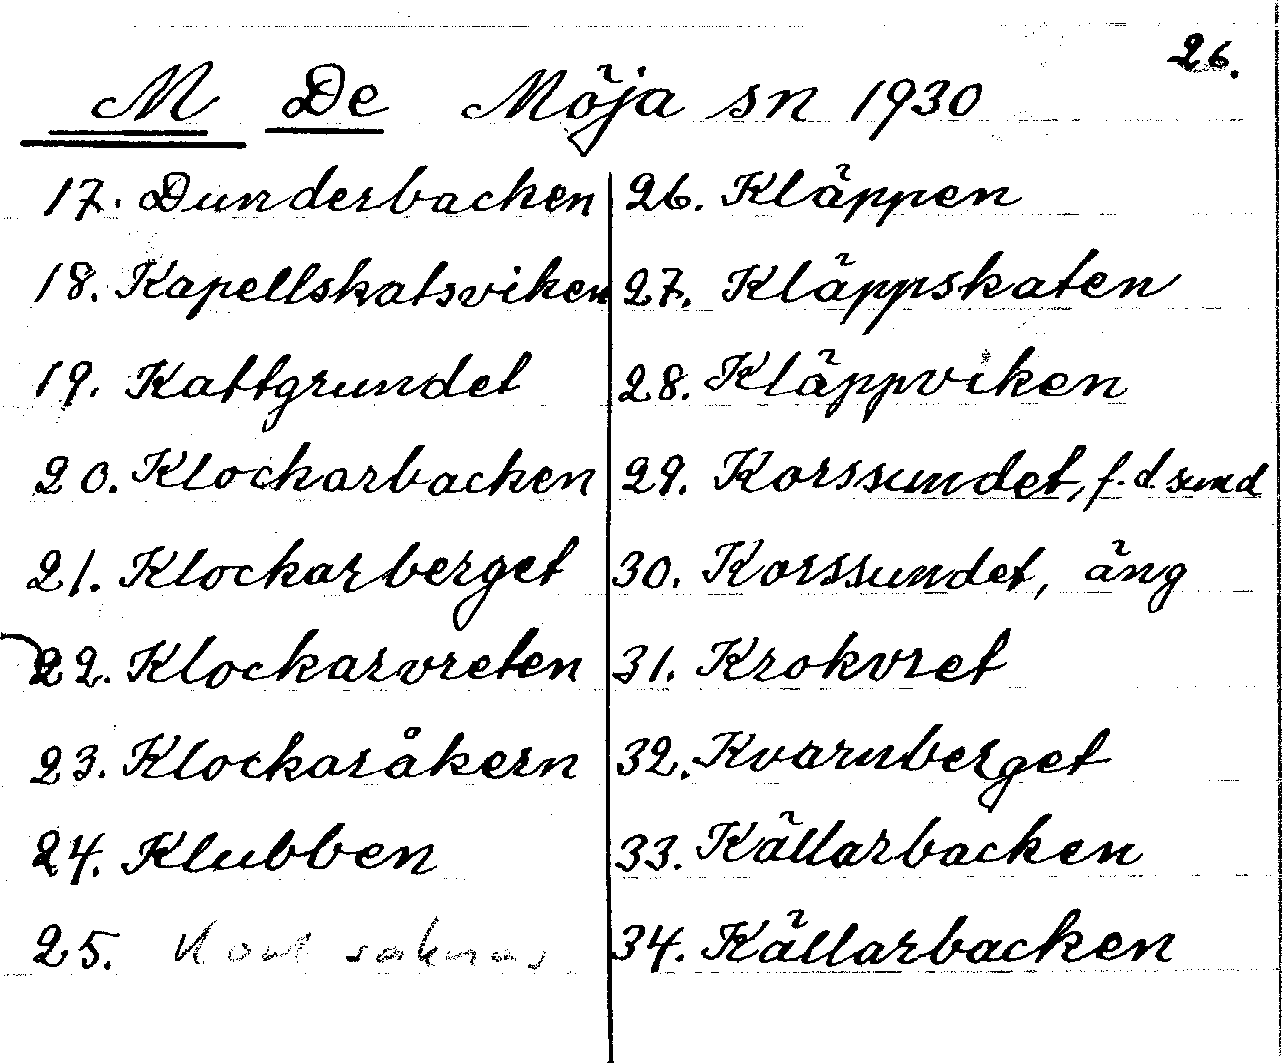 26.
M De Möja sn 1930
17. Dunderbacken
18. Kapellskatsviken
19. Kattgrundet
20. Klockarbacken
21. Klockarberget
22. Klockarvreten
23. Klockaråkern
24. Klubben
25. Kort saknas
26. Kläppen
27. Kläppskaten
28. Kläppviken
29. Korssundet, f.d sund
30. Korssundet, äng
31. Krokvret
32. Kvarnberget
33. Källarbacken
34. Källarbacken